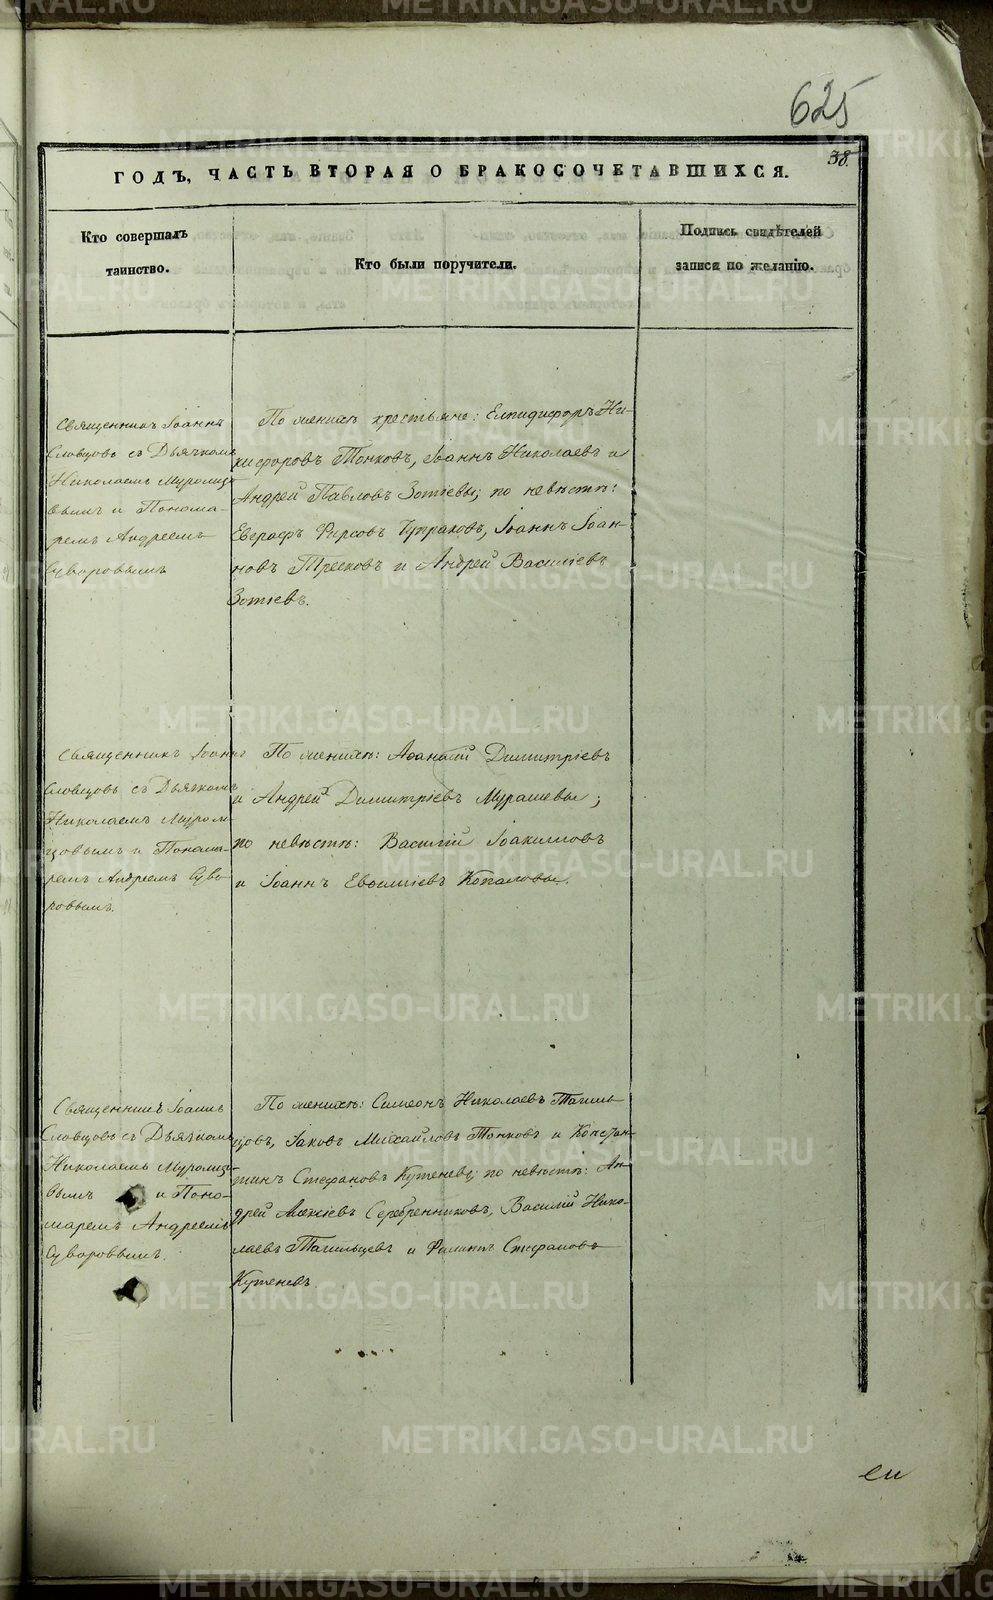 625
38.
ГОДЪ, ЧАСТЬ ВТОРАЯ О БРАКОСОЧЕТАВШИХСЯ.
Кто совершалъ
таинство.
Кто были поручители.
Подпись свидѣтелей
записи по желанію.
Священникъ Іоаннъ
Словцовъ съ Дьячкомъ
Николаемъ Муромцо-
вымъ и Понома-
ремъ Андреемъ
Суворовымъ
По женихѣ крестьяне: Елпидифоръ Ни-
кифоровъ Тонковъ, Іоаннъ Николаевъ и
Андрей Павловъ Зотѣевы; по невѣстѣ:
Евграфъ Фирсовъ Іоаннъ Іоан-
новъ Тресковъ и Андрей Василіевъ
Зотѣевъ.
Священникъ Іоаннъ
Словцовъ съ Дьячкомъ
Николаемъ Муром-
цовымъ и Понома-
ремъ Андреемъ Суво-
ровымъ.
По женихѣ: Димитріевъ
и Андрей Димитріевъ Мурашевы;
по невѣстѣ: Василій Іоакимовъ
и Іоаннъ Евѳиміевъ Копаловы.
Священникъ Іоаннъ
Словцовъ съ Дьячкомъ
Николаемъ Муромцо-
вымъ и Поно-
маремъ Андреемъ
Суворовымъ.
По женихѣ: Симеонъ Николаевъ Тагиль-
цовъ, Іаковъ Михайловъ Тонковъ и Констан-
тинъ Стефановъ Кутеневъ; по невѣстѣ: Ан-
дрей Алексіевъ Серебренниковъ, Василій Нико-
лаевъ Тагильцевъ и Филиппъ Стефановъ
Кутеневъ
METRIKI.GASO-URAL.RU